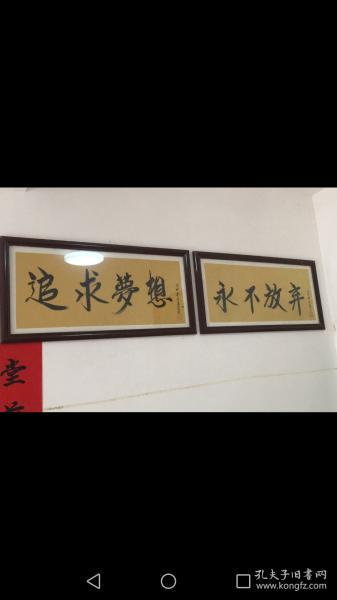 追求夢想
永不放弃
堂
孔夫子旧书网
www.kongfz.com